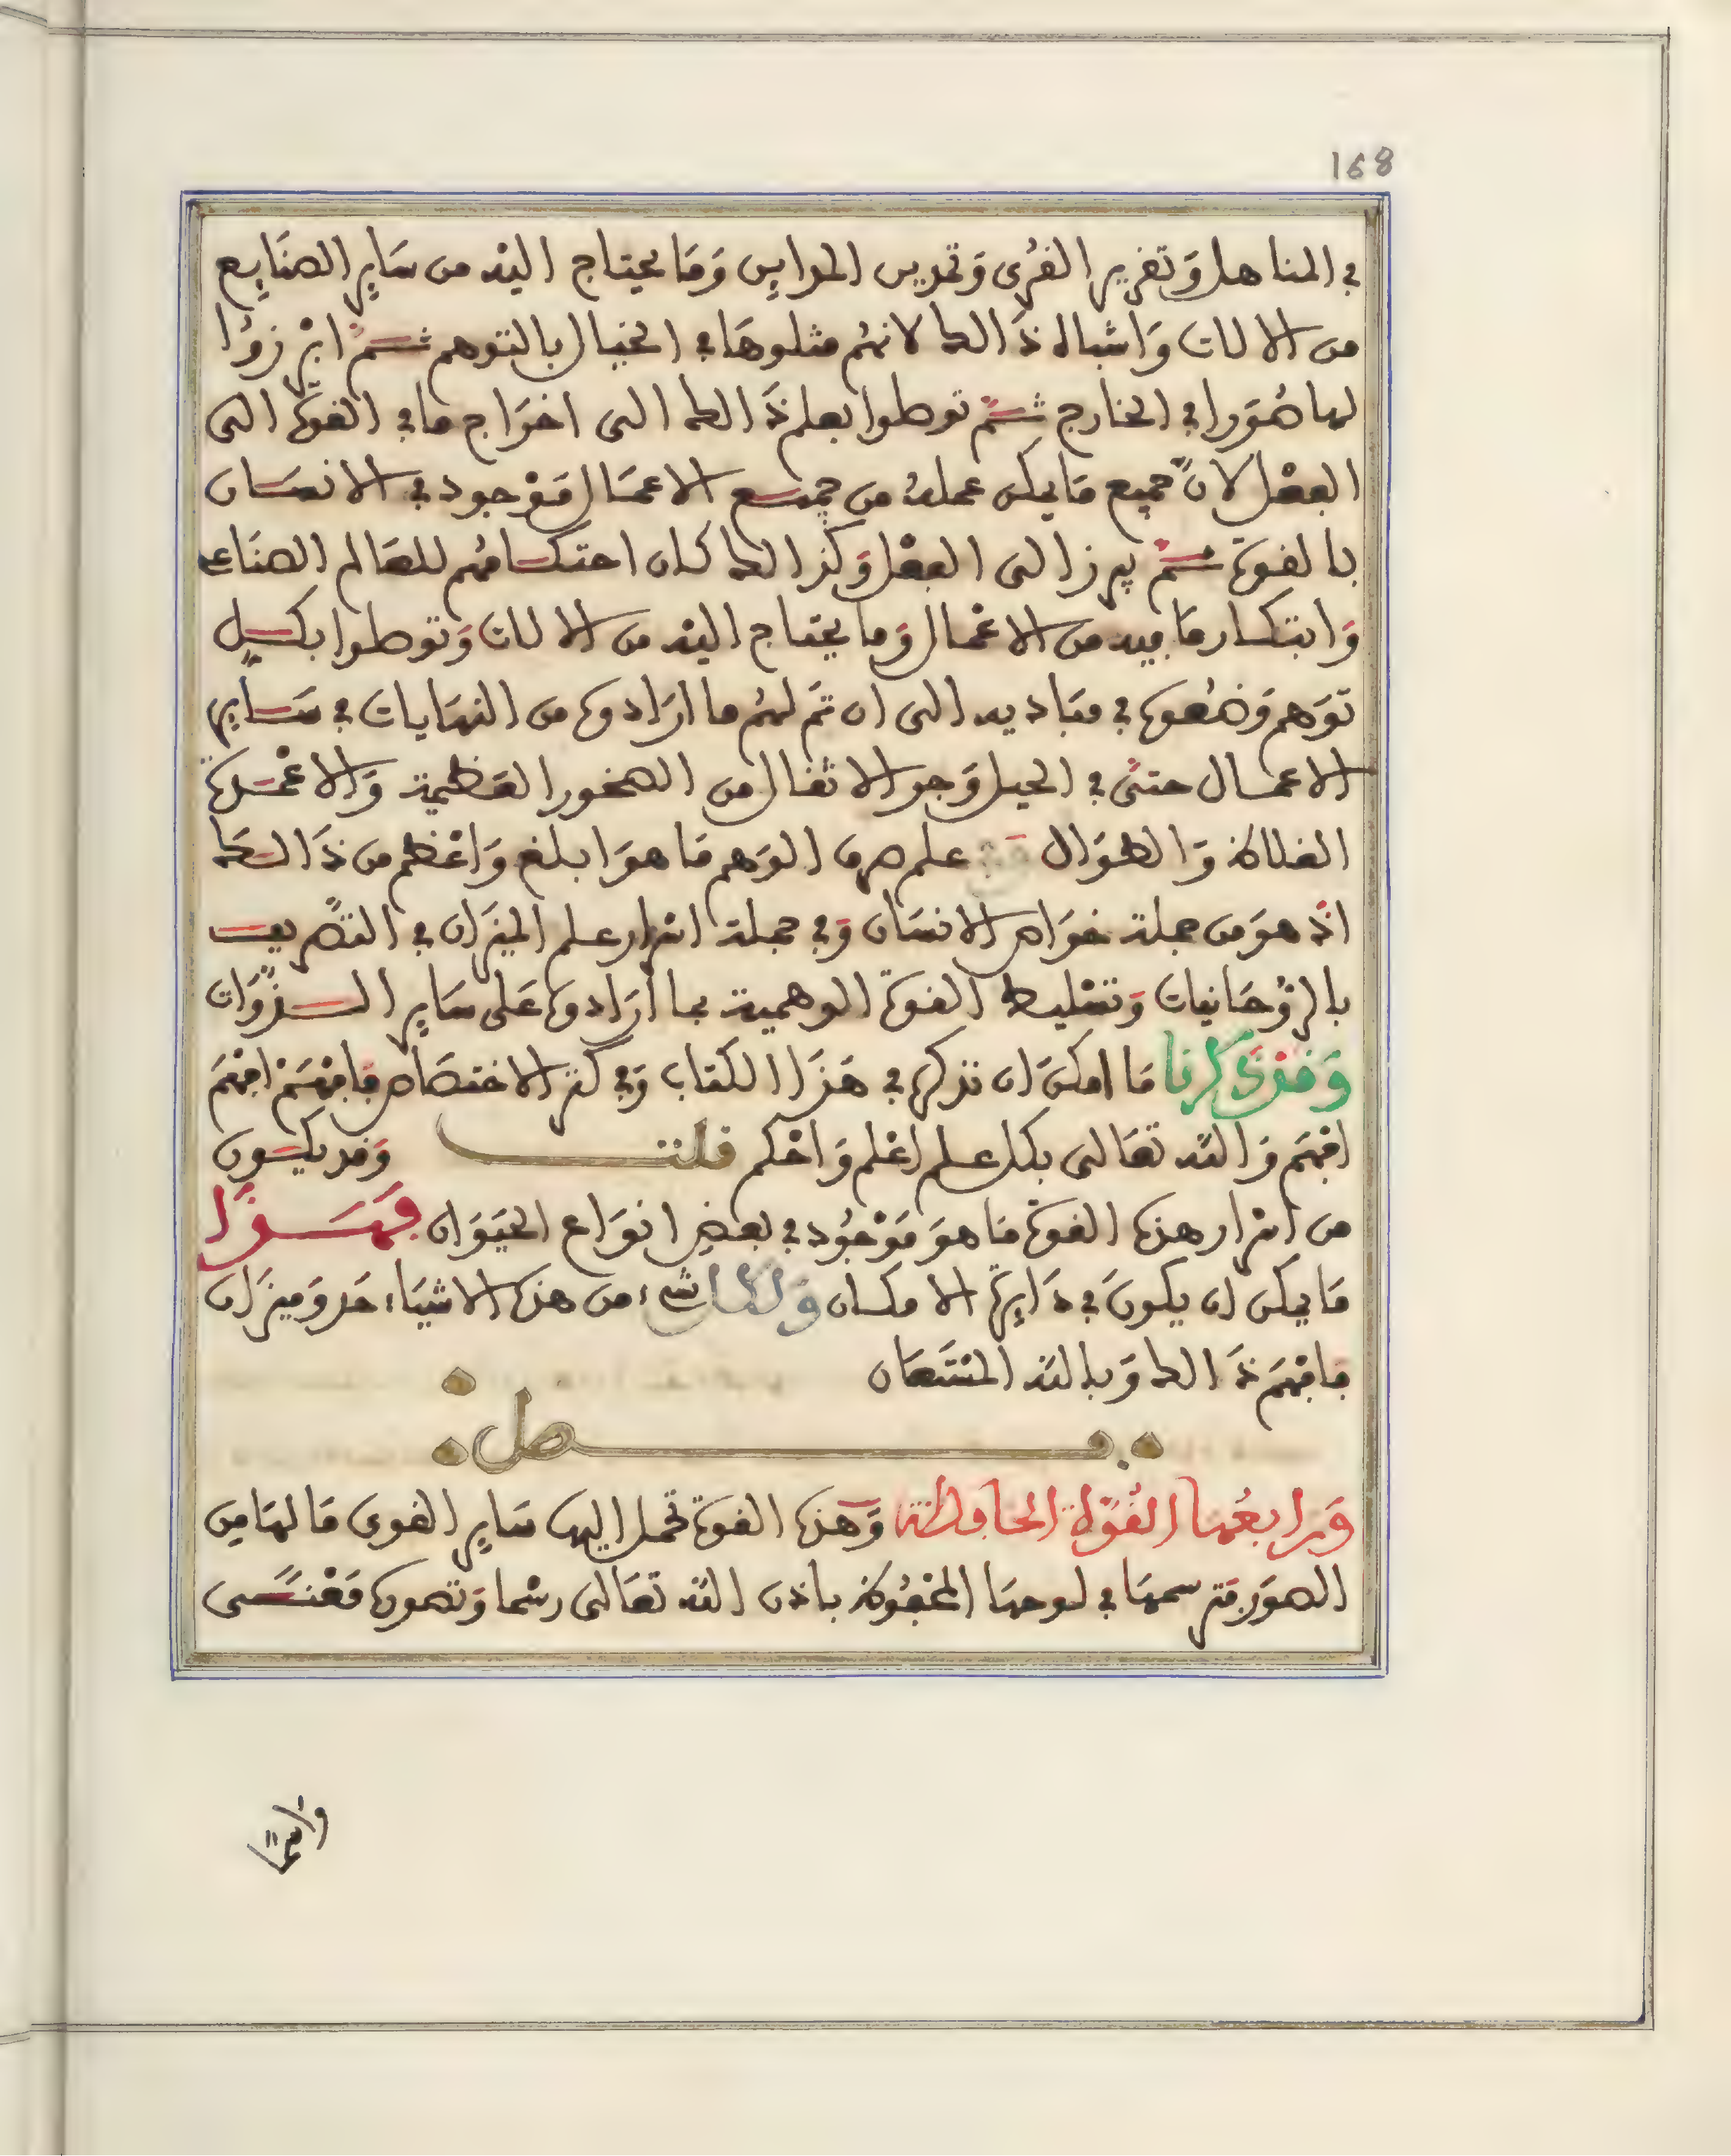 168
في المناهل وتفرير الفرى وتمدين المداين وما يحتاج اليه من ساير الصنايع
من الالات واشباه ذالك لانهم مثلوها في الخيال بالتوهم ثم ابرزوا
لها صورا في الخارج ثم توصلوا بعلم ذالك الى اخراج ما في الفوة الى
الفعل لان جميع ما يمكن عمله من جميع الاعمال موجود في الانسان
بالفوة ثم يبرز الى الفعل وكذالك كان احتكامهم للعالم الصناعي
وابتكار ما فيه من الاعمال وما يحتاج اليه من الالات وتوصلوا بكل
توهم وضعوه في مباديه الى ان تم لهم ما ارادوه من النهايات في ساير
الاعمال حتى في الحيل وجر الاثفال من الصخور العظيمة والاعمدة
الغلاظ والطوال علم صرف الوهم ما هو ابلغ واعظم من ذالك
اذ هو من جملة خواص الانسان وفي جملة اسرار علم الميزان في التصريف
بالروحانيات وتسليط الفوة الوهمية بما أرادوه على ساير الذوات
وفد ذكرنا ما امكن ان نذكره في هذا الكتاب وفي كتر الاختصاص فافهم افهم
افهم والله تعالى بكل علم اعلم واحكم فلت وفد يكون
من اسرار هذه الفوة ما هو موجود في بعض انواع الحيوان فهذا
ما يمكن ان يكون في دايرة الامكان ولكل شيء من هذه الاشياء حد وميزان
فافهم ذالك وبالله المستعان
فصل
ورابعها الفوة الحافظة وهذه الفوة تحمل اليها ساير الفوى ما لها من
الصور فترسمها في لوحها المحفوظ باذن الله تعالى رسما وتصوره معنى
واسما